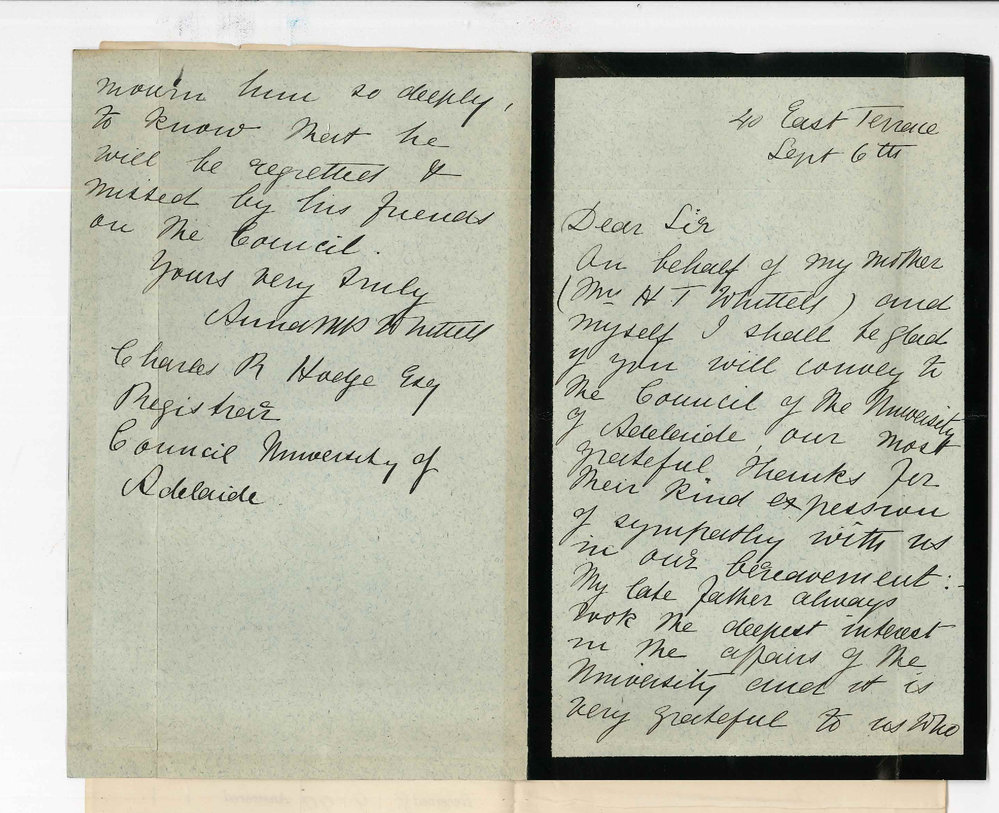 40 East Terrace
Sept 6th
Dear Sir
On behalf of my mother
(Mrs H T Whittell) and
myself I shall be glad
if you will convey to
the Council of the University
of Adelaide our most
grateful thanks for
their kind expression
of sympathy with us
in our bereavement:-
My late father always
took the deepest interest
in the affairs of the
University and it is
very grateful to us who
mourn him so deeply,
to know that he
will be regretted &
missed by his friends
on the Council.
Yours very truly
Anna Whittell
Charles R Hodge Esq
Registrar
Council University of
Adelaide